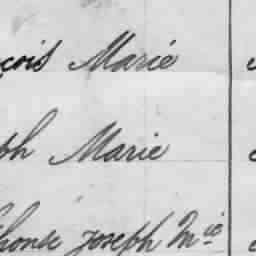 çois Marie
ph Marie
phonse Joseph Mie